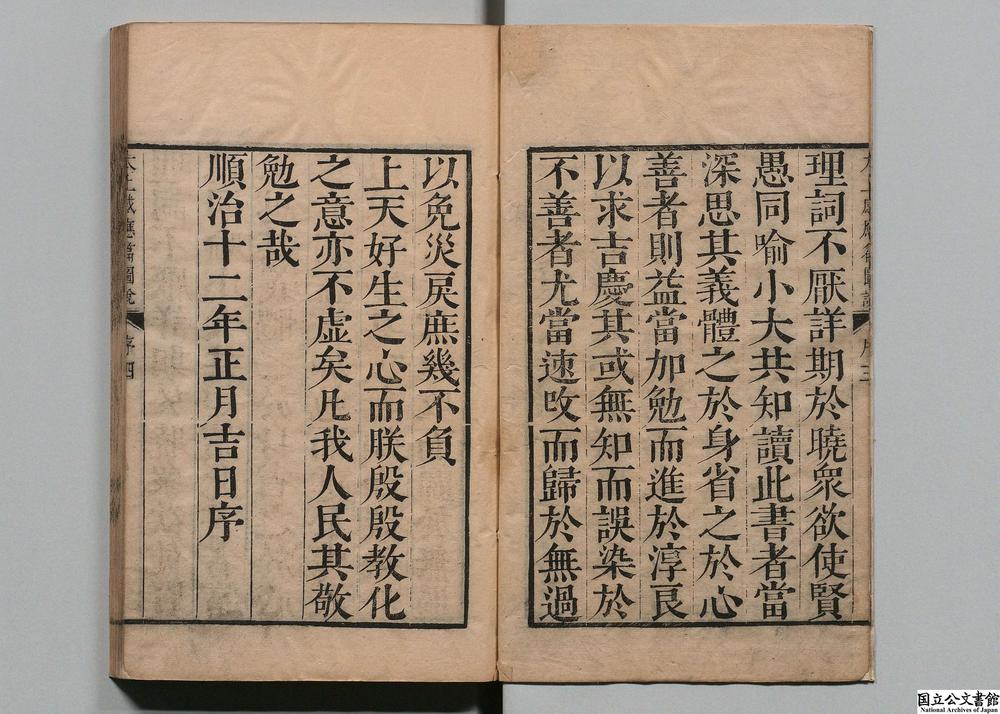 理詞不厭詳期於曉衆欲使賢
愚同喻小大共知讀此書者當
深思其義體之於身省之於心
善者則益當加勉而進於淳良
以求吉慶其或無知而誤染於
不善者尤當速改而歸於無過
以免災戾庶幾不負
上天好生之心而朕殷殷教化
之意亦不虛矣凡我人民其敬
勉之哉
順治十二年正月吉日序
太上感應篇圖說
序四
国立公文書館
National Archives of Japan